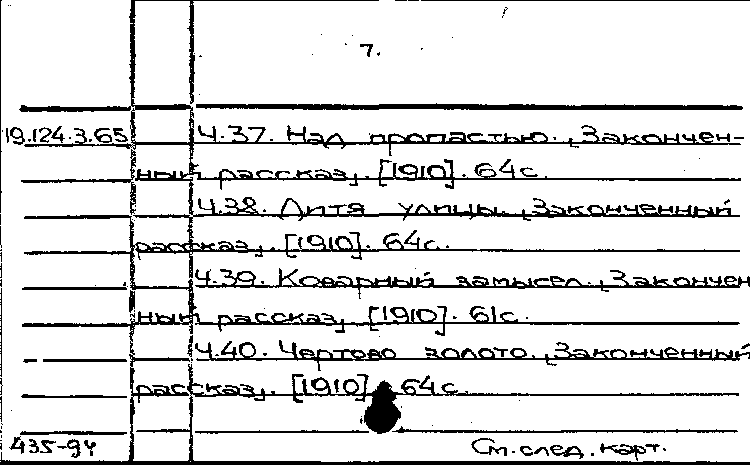 7.
19.124.3.65 Ч.37. Над пропастью. „Закончен-
ный рассказ„. [1910]. 64с.
Ч.38. Дитя улицы. „Законченный
рассказ„. [1910]. 64с.
Ч.39. Коварный замысел. „Закончен
ный рассказ„ [1910]. 61с.
Ч.40. Чертово золото. „Законченный
рассказ„. [1910] 64с.
435-94 См. след. карт.